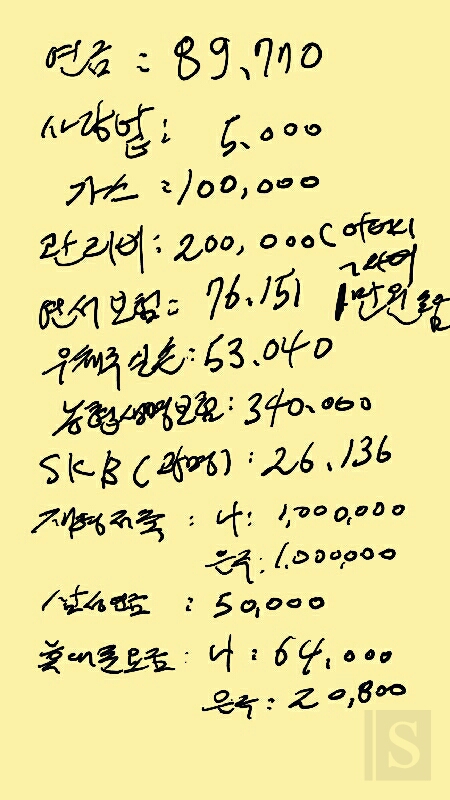 연금 : 89,770
사랑밭 : 5,000
가스 : 100,000
관리비 : 200,000 (아버지
1만원
연서보험 : 76.151
우체국실손 : 53.040
농협생명보험 : 340.000
SKB (광명) : 26.136
재형저축 : 나 : 1,000,000
은주 : 1,000,000
삼성연금 : 50,000
휴대폰요금 : 나 : 64,000
은주 : 20,800
S